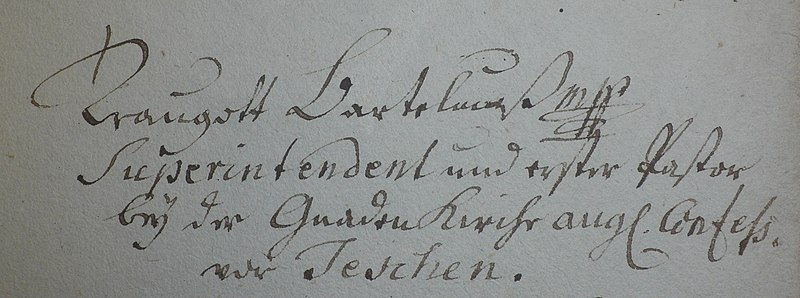 Traugott Bartelmuß mpp
Superintendent und erster Pastor
bey der Gnaden Kirche augſ. Confeſs.
vor Teschen.